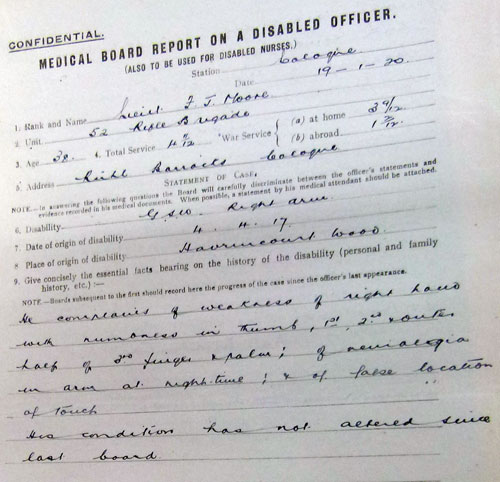 CONFIDENTIAL.
MEDICAL BOARD REPORT ON A DISABLED OFFICER.
(ALSO TO BE USED FOR DISABLED NURSES.)
Station Cologne
Date 19-1-20.
1. Rank and Name Lieut F J. Moore
2. Unit 52 Rifle Brigade
3. Age 38. 4. Total Service 4 War Service { (a) at home 3 9/12
(b) abroad 1
5. Address Riehl Barracks Cologne
STATEMENT OF CASE.
NOTE.—In answering the following questions the Board will carefully discriminate between the officer's statements and
evidence recorded in his medical documents. When possible, a statement by his medical attendant should be attached.
6. Disability GSW. Right arm.
7. Date of origin of disability 4. 4. 17.
8. Place of origin of disability Havrincourt Wood.
9. Give concisely the essential facts bearing on the history of the disability (personal and family
history, etc.) :—
NOTE.—Boards subsequent to the first should record here the progress of the case since the officer's last appearance.
He complains of weakness of right hand
with numbness in thumb, 1st, 2nd & outer
half of 3rd finger & palm; of neuralgia
in arm at night-time; & of false location
of touch
His condition has not altered since
last board